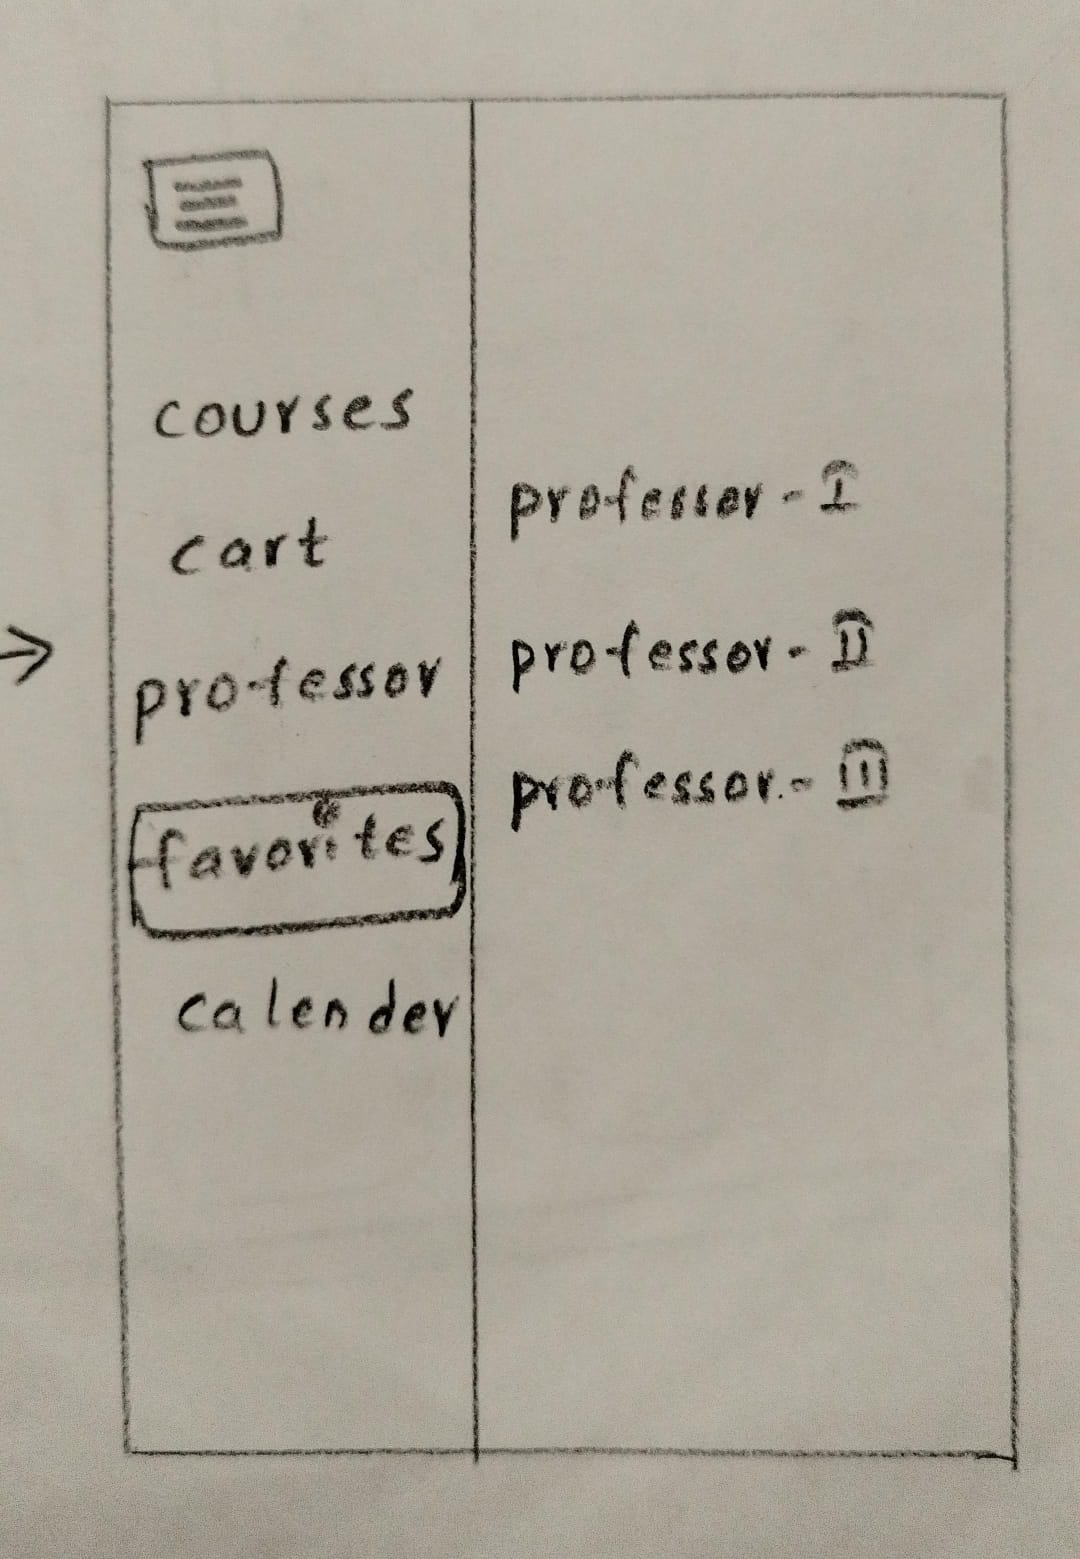 courses
cart
professor
favorites
calender
professor - I
professor - II
professor - III